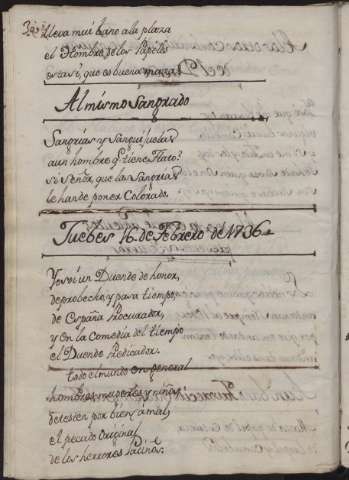 lleva mui ufano a la plaza
el Hombre de los Papeles
estas si, que es buena maza.
Al mismo Sangrado
Sangrias, y Sanguijuelas
a un hombre q tiene flato?
si Señor, que las Sangrias
le han de poner Colorado.
Juebes 16 de Febrero de 1736
Yo soi un Duende de honor,
de probecho, y para tiempo,
de España Procurador,
y en la Comedia del tiempo
el Duende Predicador.
todo el mundo en general
hombres, mugeres, y niños
detesten por bien, y a mal
el pecado Original
de los herrores Latinos.